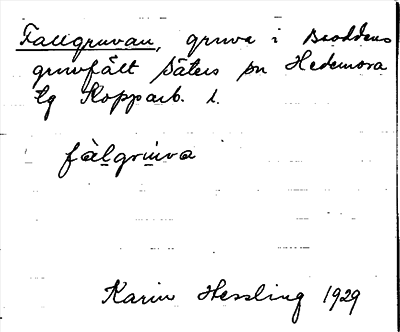 Fallgruvan, gruva i Broddens
gruvfält Säters sn Hedemora
tg Kopparb. l.
fàlgruva
Karin Hessling 1929